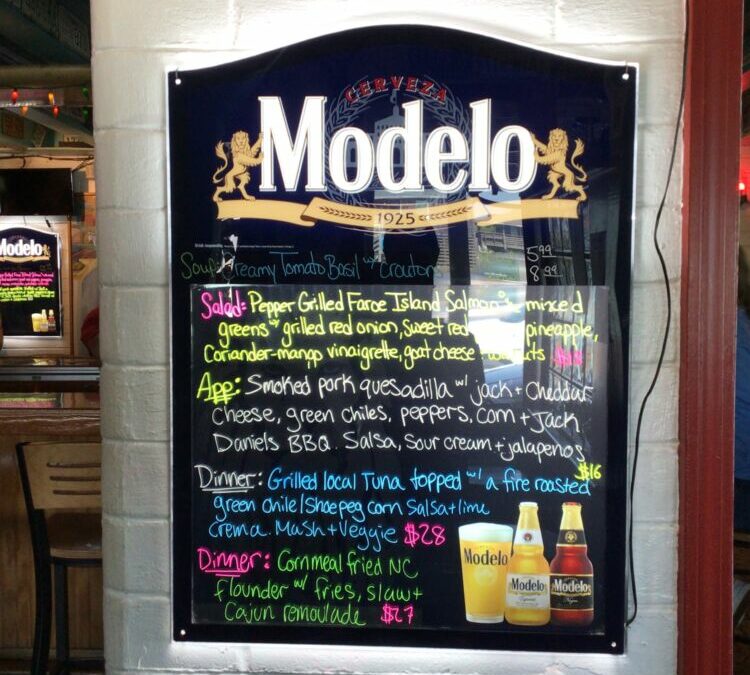 CERVEZA
Modelo
1925
Soup: Creamy Tomato Basil w/ Croutons
5.99
8.99
Salad: Pepper Grilled Faroe Island Salmon w/ mixed
greens w/ grilled red onion, sweet red pineapple,
Coriander-mango vinaigrette, goat cheese
App: Smoked pork quesadilla w/ jack + Cheddar
Cheese, green chiles, peppers, corn + Jack
Daniels BBQ. Salsa, Sour cream + jalapenos
$16
Dinner: Grilled local Tuna topped w/ a fire roasted
green chile/Shoepeg corn Salsa + lime
Crema. Mash + Veggie $28
Dinner: Cornmeal fried NC
flounder w/ fries, slaw +
Cajun remoulade $27
Modelo
Modelo
Modelo
Modelo